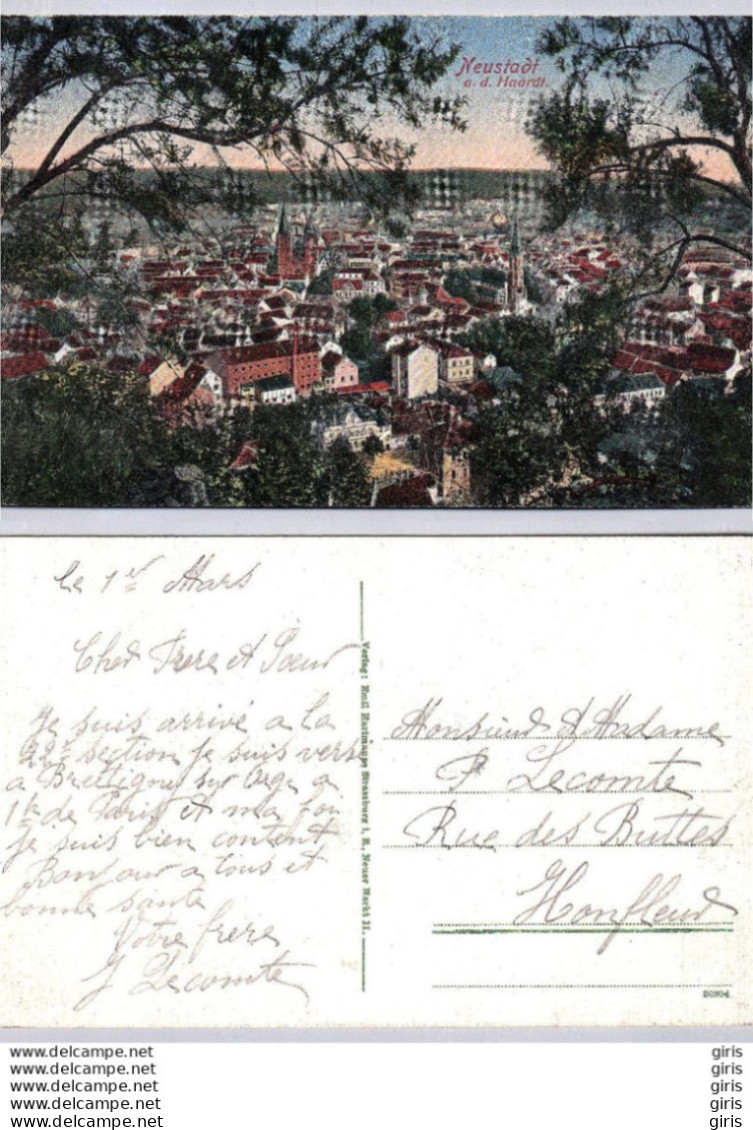 Neustadt
a. d. Haardt.
le 1er Mars
Cher Frere et Sœur
Je suis arrivé a la
22e section je suis vers
a Bretigny sur Orge a
1h de Paris et ma foi
je suis bien content
Bonjour a tous et
bonne santé
Votre frere
J Lecomte
Verlag: Emil Hartmann, Strassburg i. E., Neuer Markt
Monsieur & Madame
P Lecomte
Rue des Buttes
Honfleur
www.delcampe.net giris
www.delcampe.net giris
www.delcampe.net giris
www.delcampe.net giris
www.delcampe.net giris